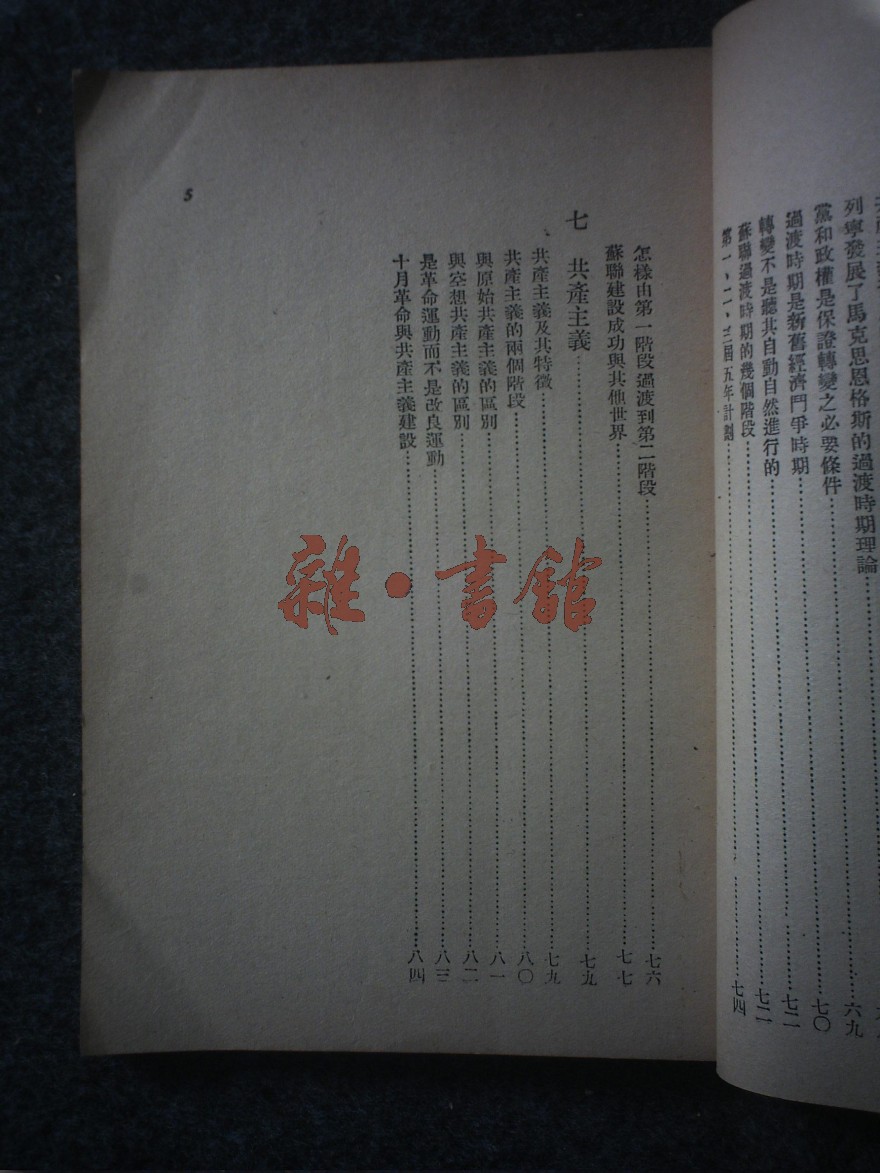 列寧發展了馬克思恩格斯的過渡時期理論
黨和政權是保證轉變之必要條件……六九
過渡時期是新舊經濟鬥爭時期……七〇
轉變不是聽其自動自然進行的……七二
蘇聯過渡時期的幾個階段……七二
第一、二、三個五年計劃……七四
怎樣由第一階段過渡到第二階段……七六
蘇聯建設成功與其他世界……七七
七 共產主義……七九
共產主義及其特徵……七九
共產主義的兩個階段……八〇
與原始共產主義的區別……八一
與空想共產主義的區別……八二
是革命運動而不是改良運動……八三
十月革命與共產主義建設……八四
5
雜·書館